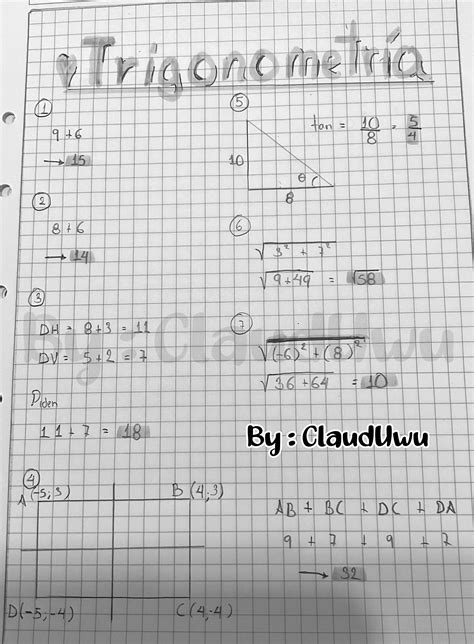 Trigonometría
1
9 + 6
→ 15
2
8 + 6
→ 14
3
DH = 8 + 3 = 11
DV = 5 + 2 = 7
Piden
11 + 7 = 18
4
A (-5; 3)
B (4; 3)
D(-5; -4)
C(4; -4)
5
tan = 10/8 = 5/4
10
θ
8
6
√3² + 7²
√9 + 49 = √58
7
√(-6)² + (8)²
√36 + 64 = 10
By : ClaudUwu
By : ClaudUwu
AB + BC + DC + DA
9 + 7 + 9 + 7
→ 32